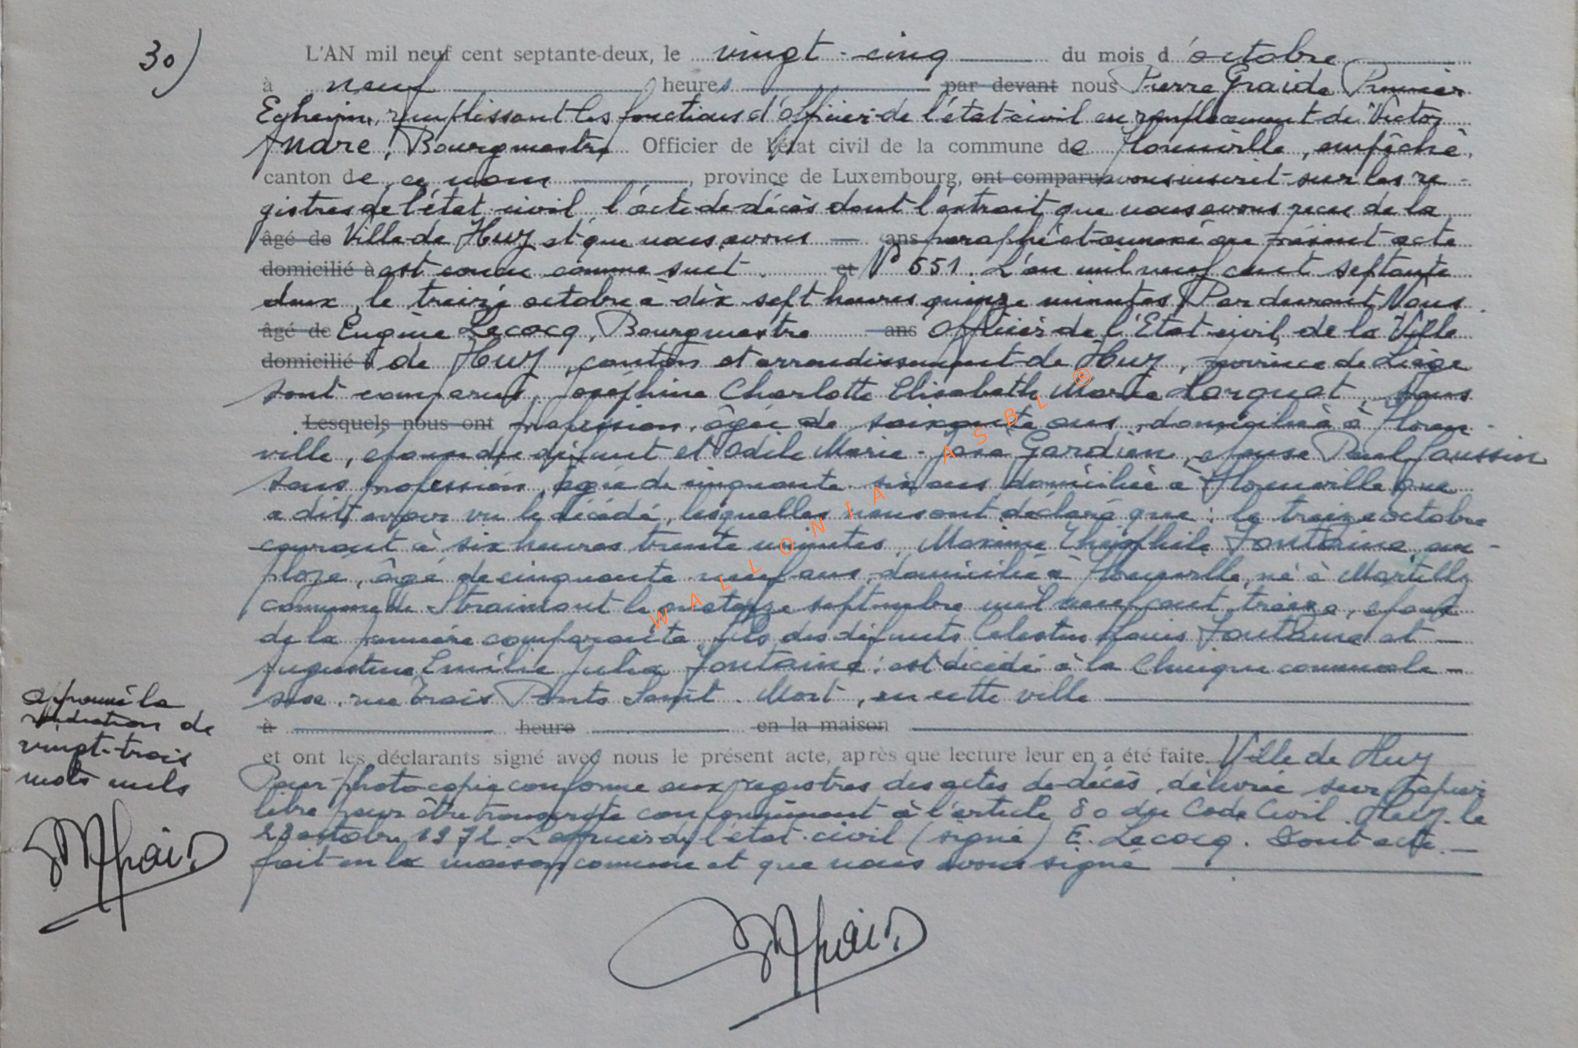 30)
L'AN mil neuf cent septante-deux, le vingt-cinq du mois d'octobre
à neuf heures par devant nous Pierre Graide Premier
Echevin, remplissant les fonctions d'officier de l'état-civil en remplacement de Victor
André, Bourgmestre Officier de l'état civil de la commune de Florenville, empêché,
canton de ce nom, province de Luxembourg, ont comparu avons inscrit sur les re-
gistres de l'état civil, l'acte de décès dont l'extrait que nous avons reçu de la
âgé de Ville de Huy et que nous avons ans paraphé et annexé au présent acte
domicilié à est conçu comme suit. et N° 551. L'an mil neuf cent septante
deux, le treize octobre à dix sept heures quinze minutes Par devant Nous
âgé de Eugène Lecocq, Bourgmestre ans Officier de l'Etat-civil de la Ville
domicilié à de Huy, canton et arrondissement de Huy, province de Liège
sont comparues, Josephine Charlotte Elisabeth Marie Lorquet, sans
Lesquels nous ont profession, âgée de soixante ans, domiciliée à Floren-
ville, épouse du défunt et Odile Marie-José Gardien, épouse Paul
sans profession, âgée de cinquante-six ans domiciliée à Florenville que
a dit avoir vu le décédé, lesquelles nous ont déclaré que: le treize octobre
courant à six heures trente minutes, Maxime Théophile Fontaine, em-
ployé, âgé de cinquante neuf ans, domicilié à Florenville, né à Martilly
commune de Straimont le quatorze septembre mil neuf cent treize, époux
de la première comparante, fils des défunts Célestin Louis Fontaine et
Augustine Emélie Julia Fontaine: est décédé à la Clinique communale
sise, rue trois Ponts Saint-Mort, en cette ville
à heure en la maison
et ont les déclarants signé avec nous le présent acte, après que lecture leur en a été faite. Ville de Huy
Pour photocopie conforme aux registres des actes de décès, délivrée sur papier
libre pour être transcrite conformément à l'article 80 du Code Civil. Huy le
23 octobre 1972 L'officier de l'état-civil (signé) E. Lecocq. Dont acte.
fait en la maison commune et que nous avons signé
approuvé la
radiation de
vingt-trois
mots nuls
WALLONIA ASBL ®